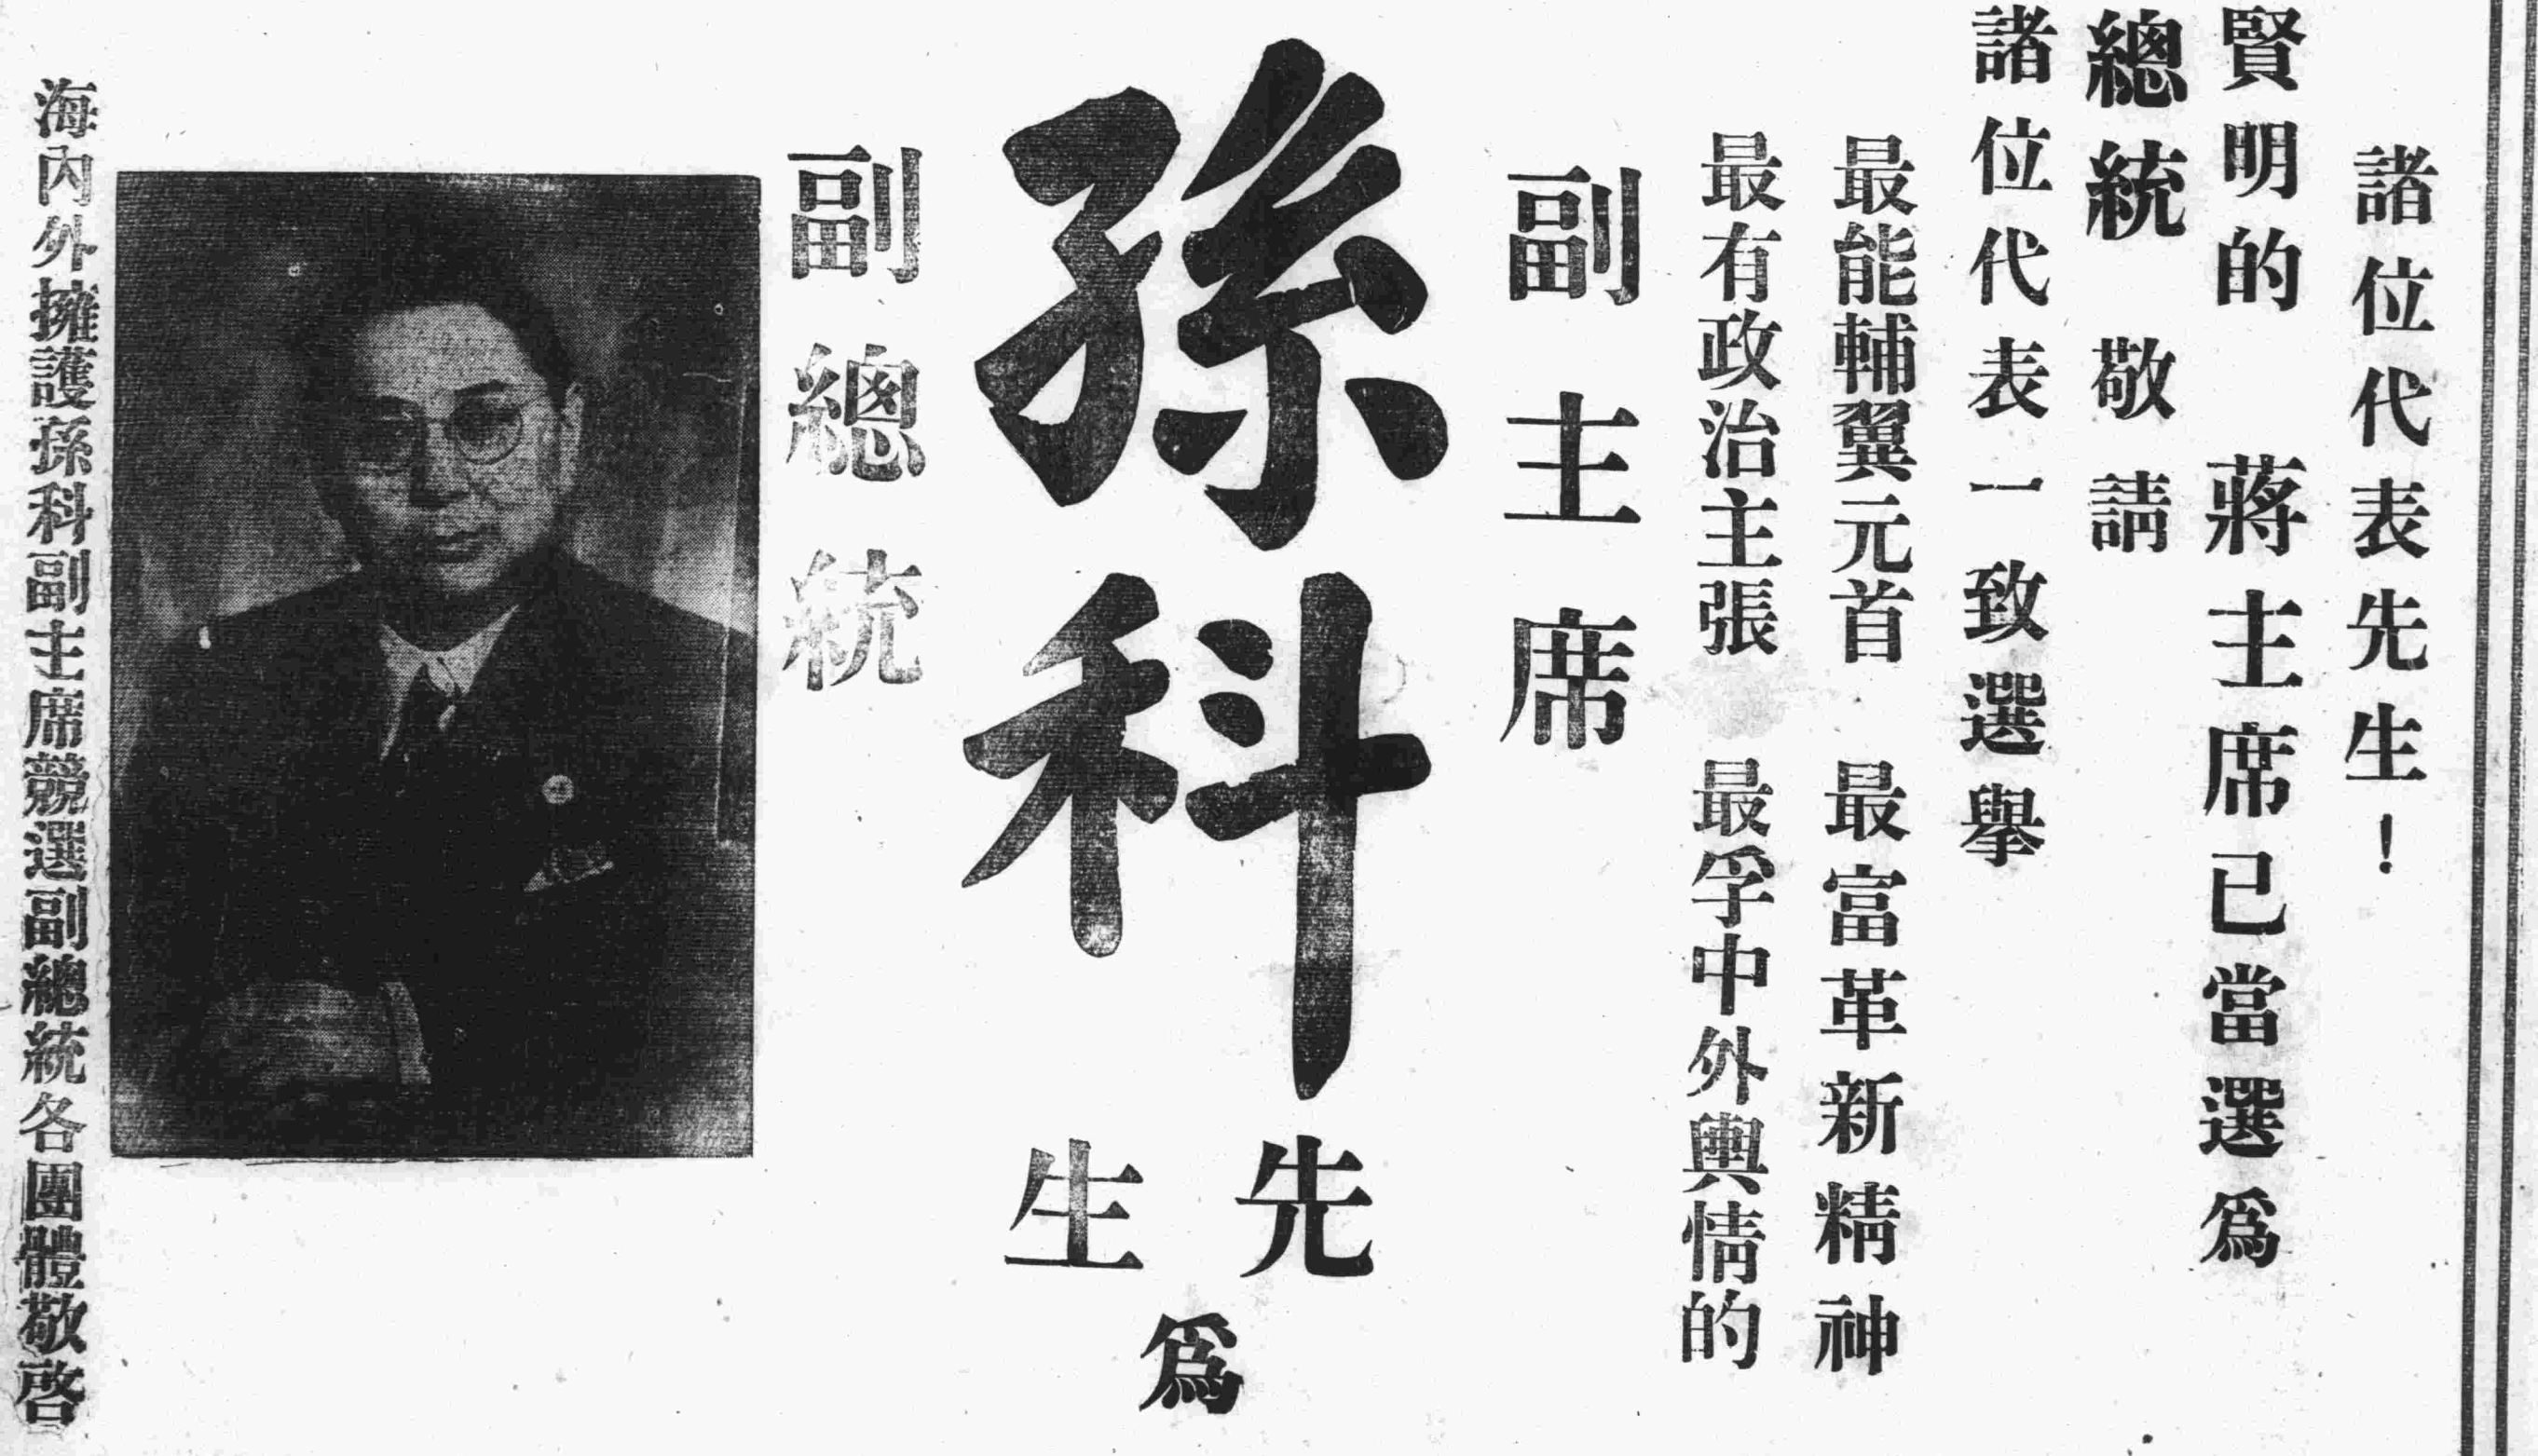 諸位代表先生！
賢明的　蔣主席已當選爲
總統　敬請
諸位代表一致選舉
最能輔翼元首　最富革新精神
最有政治主張　最孚中外輿情的
副主席
孫科先生爲
副總統
海內外擁護孫科副主席競選副總統各團體敬啓